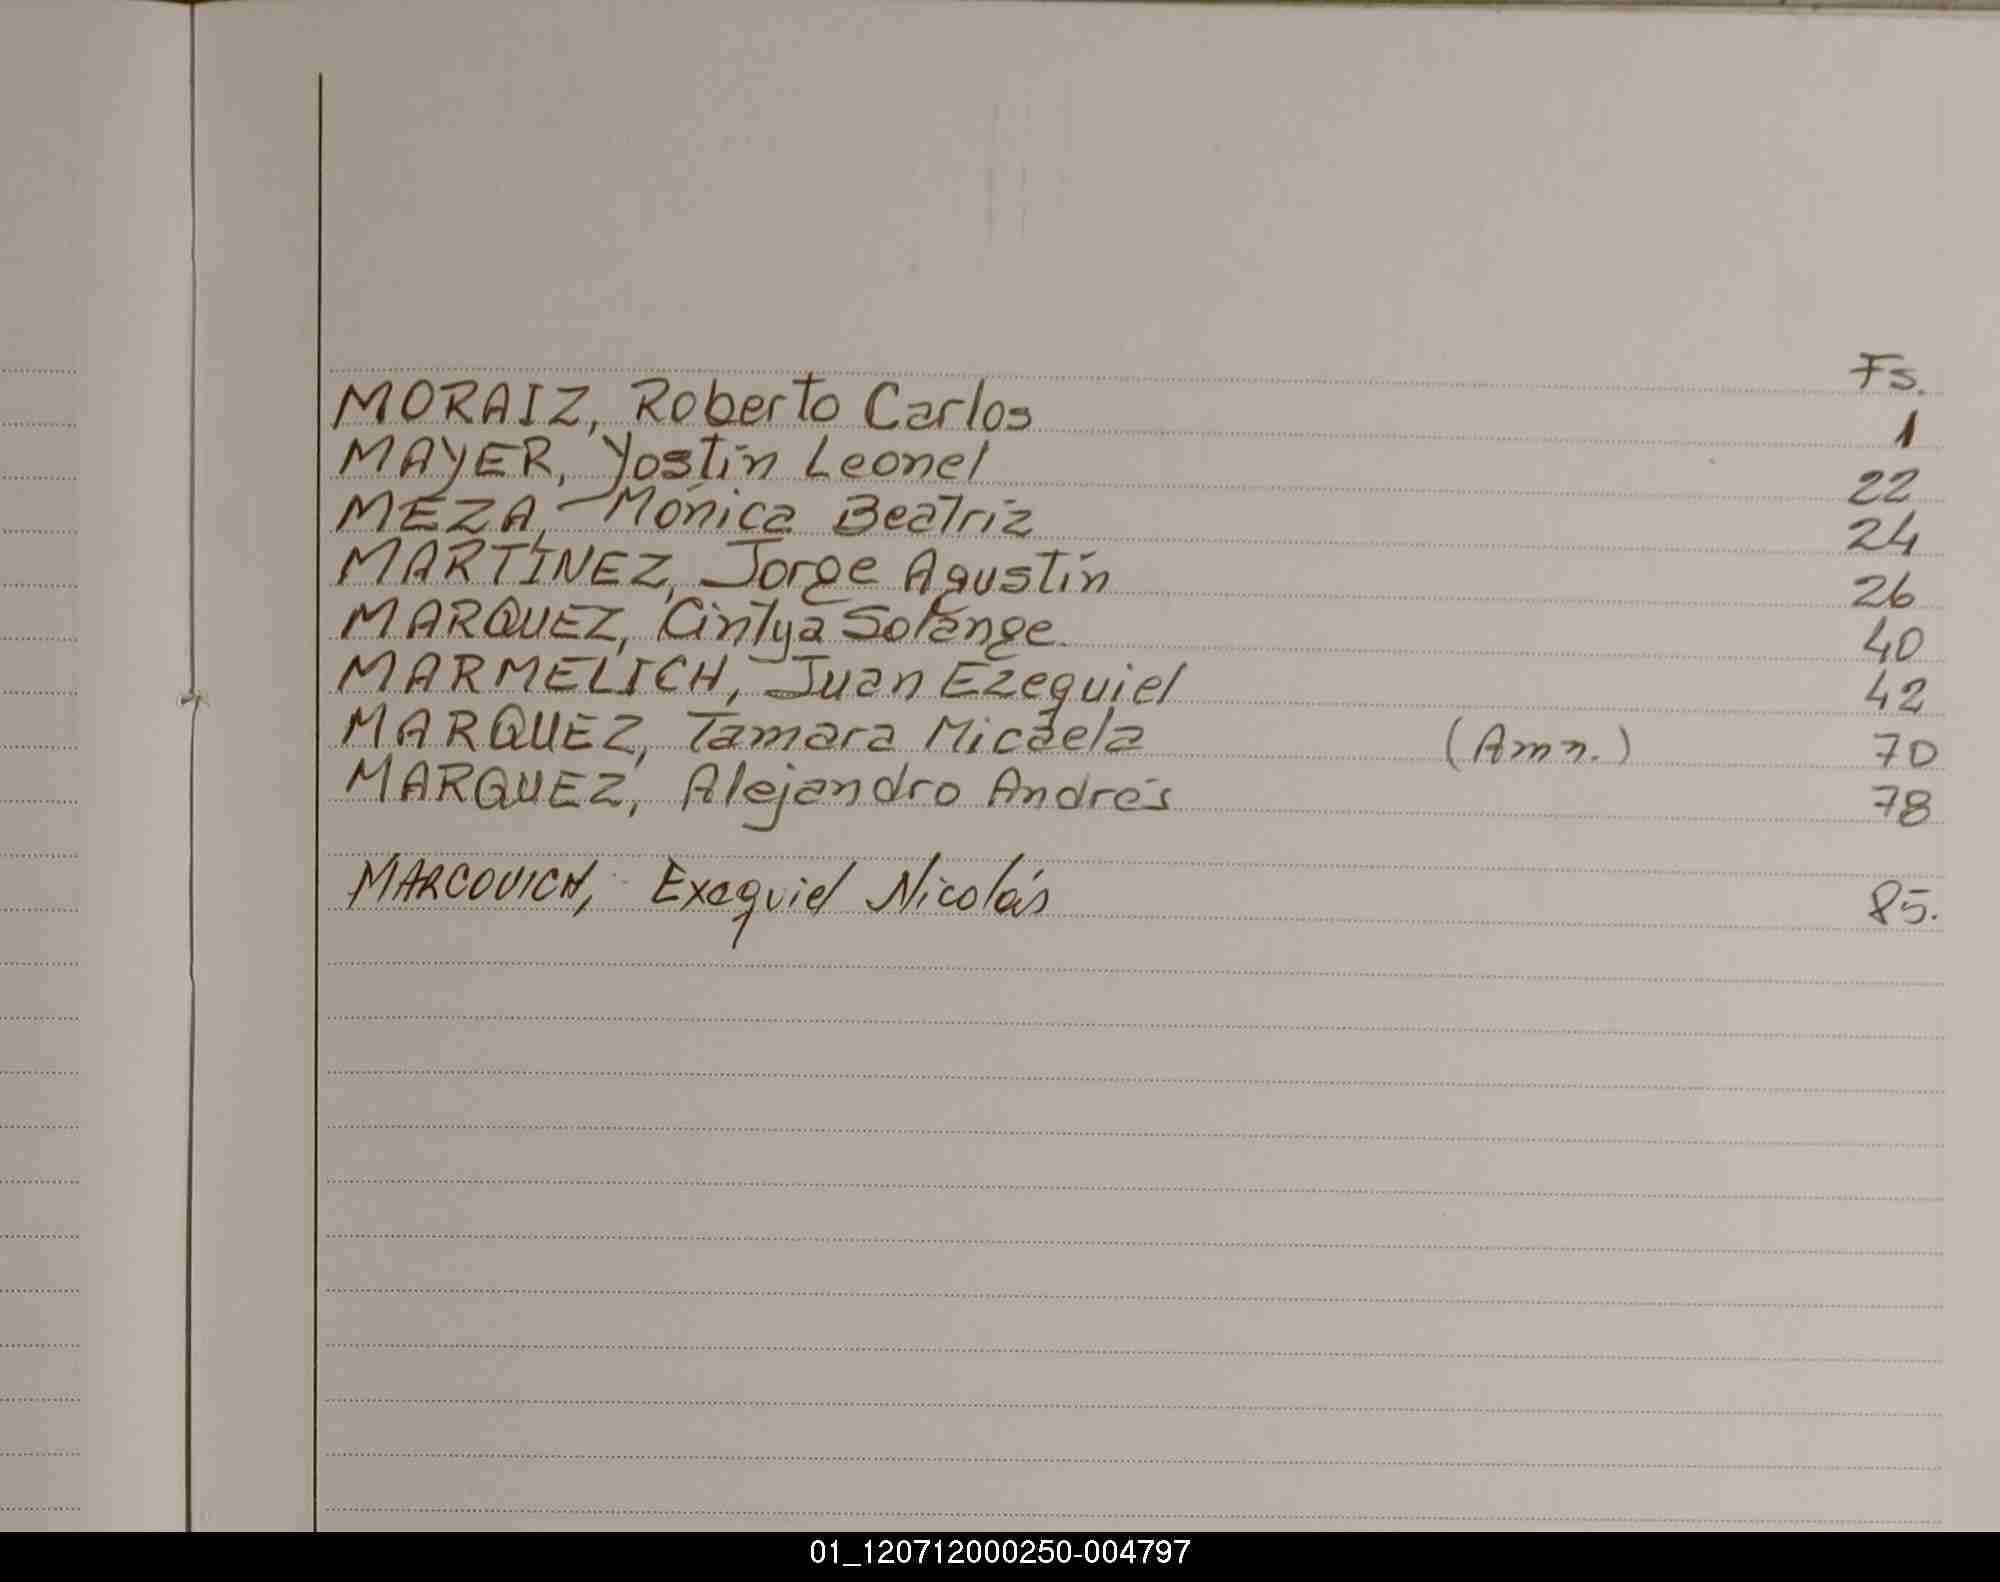 Fs.
MORAIZ, Roberto Carlos 1
MAYER, Yostin Leonel 22
MEZA, Mónica Beatriz 24
MARTÍNEZ, Jorge Agustín 26
MARQUEZ, Cintya Solange. 40
MARMELICH, Juan Ezequiel 42
MARQUEZ, Tamara Micaela (Amn.) 70
MARQUEZ, Alejandro Andrés 78
MARCOVICH, Exequiel Nicolás 85.
01_120712000250-004797